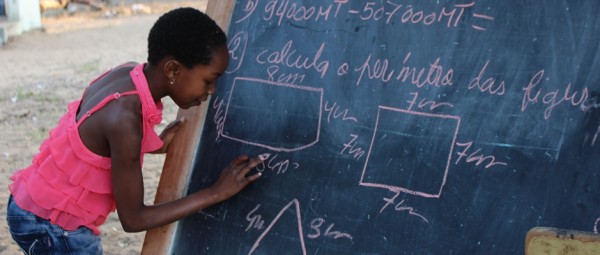 b) 94000MT - 507000MT =
calcula o perímetro das figura
8cm
4cm
4cm
8cm
7cm
7cm
7cm
7cm
3cm